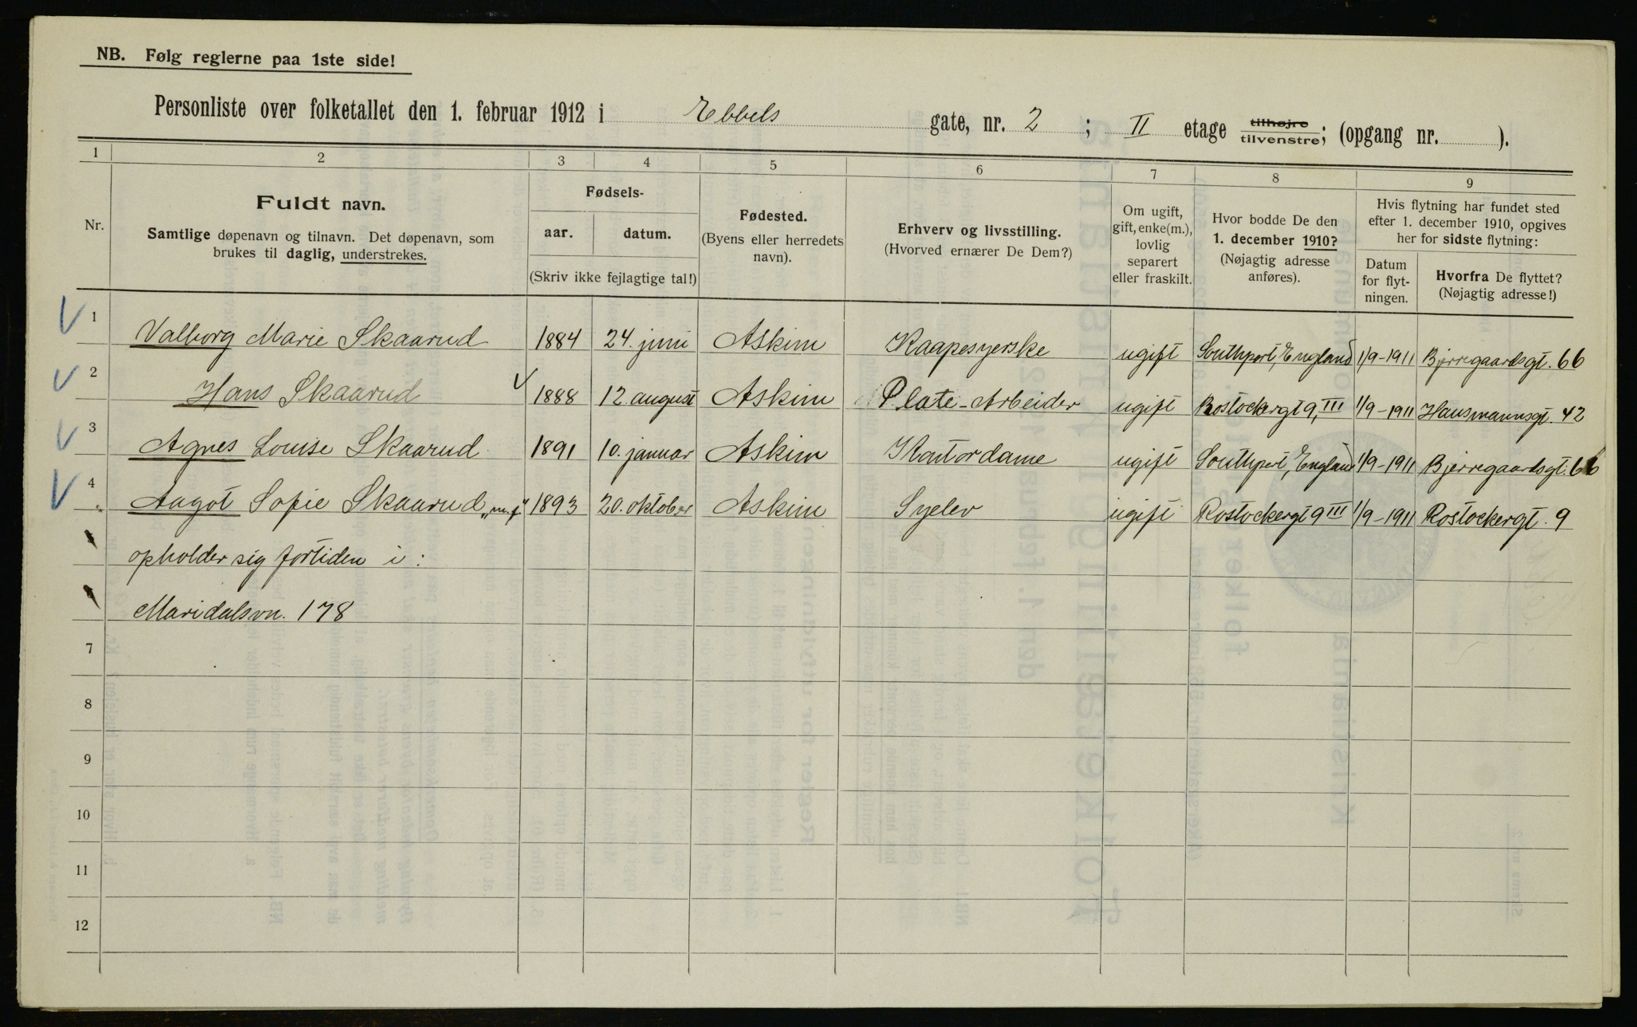 NB. Følg reglerne paa 1ste side!
Personliste over folketallet den 1. februar 1912 i Ebbels gate, nr. 2; II etage tilhøjre tilvenstre; (opgang nr. ).
1 2 3 4 5 6 7 8 9
Nr.
Fuldt navn.
Samtlige døpenavn og tilnavn. Det døpenavn, som
brukes til daglig, understrekes.
Fødsels-
aar. datum.
(Skriv ikke fejlagtige tal!)
Fødested.
(Byens eller herredets
navn).
Erhverv og livsstilling.
(Hvorved ernærer De Dem?)
Om ugift,
gift, enke(m.),
lovlig
separert
eller fraskilt.
Hvor bodde De den
1. december 1910?
(Nøjagtig adresse
anføres).
Hvis flytning har fundet sted
efter 1. december 1910, opgives
her for sidste flytning:
Datum
for flyt-
ningen.
Hvorfra De flyttet?
(Nøjagtig adresse!)
1 Valborg Marie Skaarud 1884 24. juni Askim Kaapesyerske ugift Southport, England 1/9-1911 Bjerregaardsgt. 66
2 Hans Skaarud 1888 12 august Askim Plate-Arbeider ugift Rostockergt 9, III 1/9-1911 Hausmannsgt. 42
3 Agnes Louise Skaarud 1891 10. januar Askim Kontordame ugift Southport, England 1/9-1911 Bjerregaardsgt. 66
4 Aagot Sofie Skaarud 1893 20. oktober Askim Syelev ugift Rostockergt 9 III 1/9-1911 Rostockergt. 9
opholder sig fortiden i:
Maridalsvn. 178
7
8
9
10
11
12